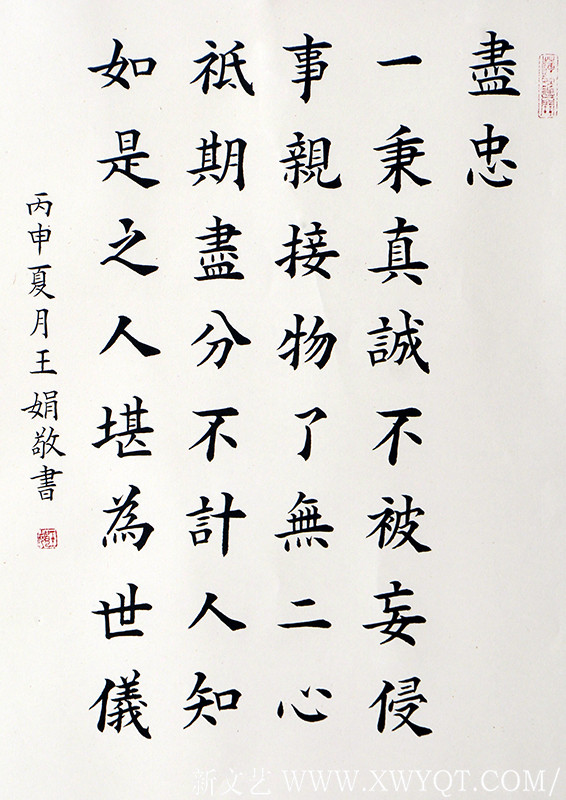 盡忠
一秉真誠不被妄侵
事親接物了無二心
祗期盡分不計人知
如是之人堪為世儀
丙申夏月王娟敬書
新文艺 WWW.XWYQT.COM/